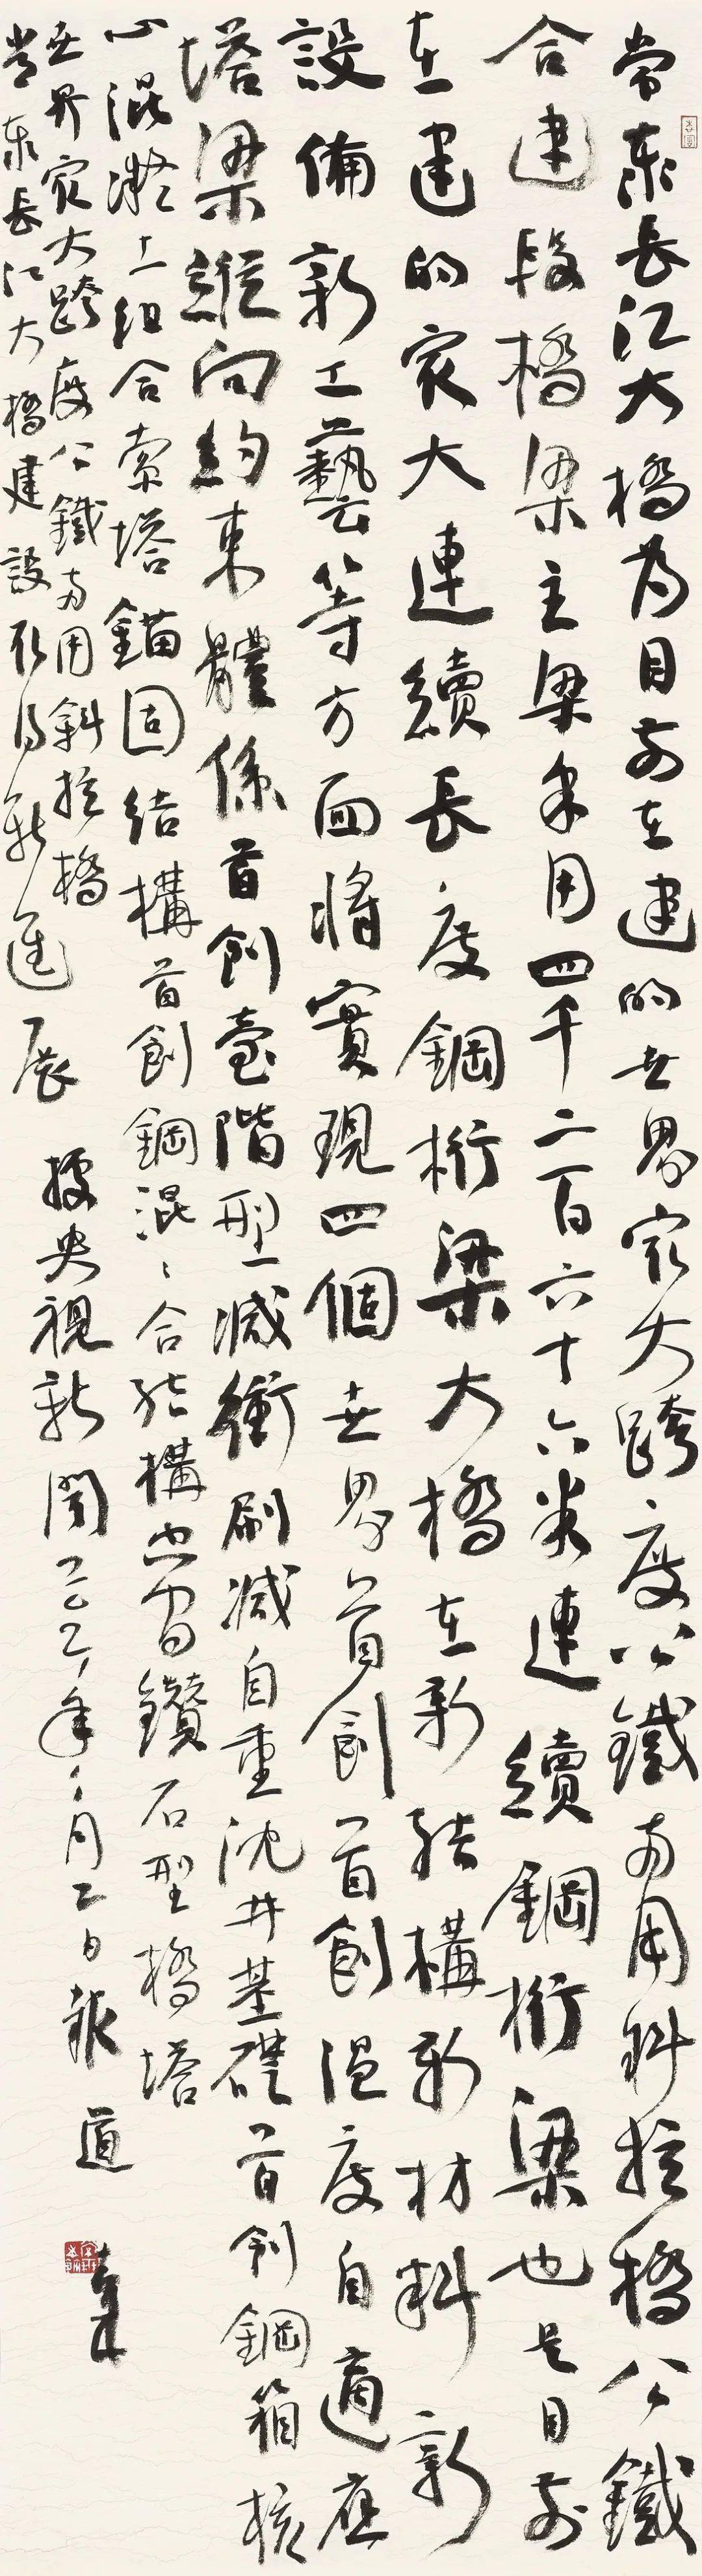 常泰長江大橋為目前在建的世界最大跨度公鐵兩用斜拉橋公鐵
合建段橋梁主梁采用四千二百六十六米連續鋼桁梁也是目前
在建的最大連續長度鋼桁梁大橋在新結構新材料新
設備新工藝等方面將實現四個世界首創首創溫度自適應
塔梁縱向約束體係首創臺階型減衝刷減自重沈井基礎首創鋼箱核
心混凝土組合索塔錨固結構首創鋼混混合結構空間鑽石型橋塔
世界最大跨度公鐵兩用斜拉橋
常泰長江大橋建設取得新進展
據央視新聞二〇二一年一月二日報道